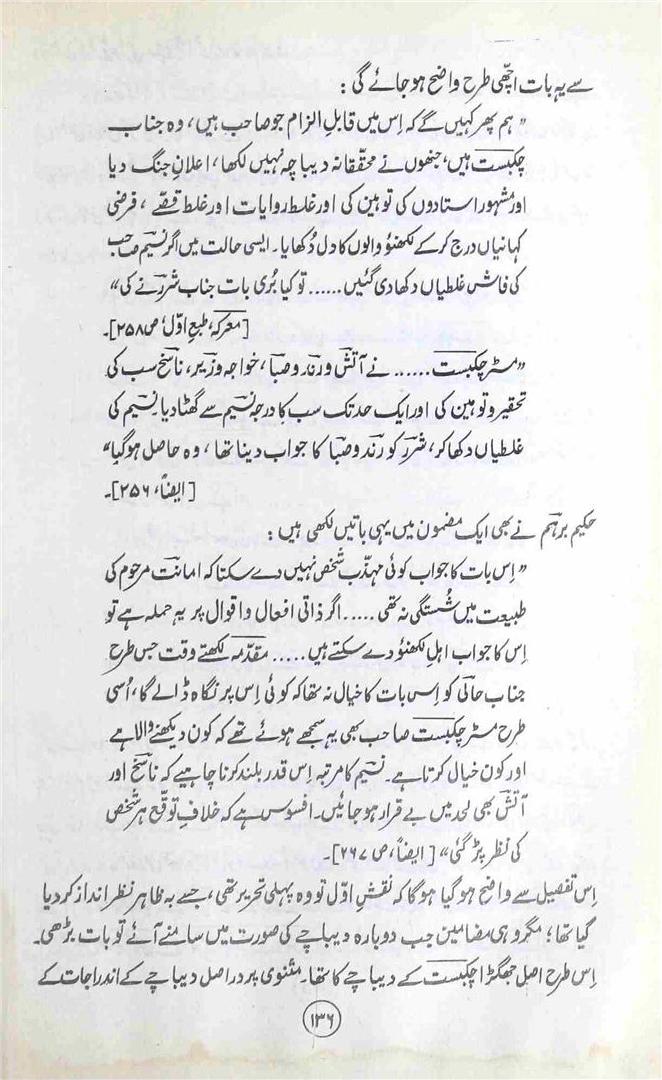 سے یہ بات اچھی طرح واضح ہو جائے گی :
” ہم پھر کہیں گے کہ اِس میں قابلِ الزام جو صاحب ہیں، وہ جناب
چکبست ہیں، جنھوں نے محققانہ دیباچہ نہیں لکھا، اعلانِ جنگ دیا
اور مشہور استادوں کی توہین کی اور غلط روایات اور غلط قصّے ، فرضی
کہانیاں درج کرکے لکھنؤ والوں کا دل دُکھایا۔ ایسی حالت میں اگر نسیم صاحب
کی فاش غلطیاں دکھا دی گئیں...... تو کیا بُری بات جناب شرر نے کی“
[معرکہ، طبعِ اوّل، ص ۲۵۸]۔
”مسٹر چکبست...... نے آتش و رند و صبا، خواجہ وزیر، ناسخ سب کی
تحقیر و توہین کی اور ایک حد تک سب کا درجہ نسیم سے گھٹا دیا۔ نسیم کی
غلطیاں دکھا کر، شرر کو رند و صبا کا جواب دینا تھا، وہ حاصل ہو گیا“
[ ایضاً، ۲۵۶]۔
حکیم برہم نے بھی ایک مضمون میں یہی باتیں لکھی ہیں :
” اِس بات کا جواب کوئی مہذّب شخص نہیں دے سکتا کہ امانت مرحوم کی
طبیعت میں شُستگی نہ تھی..... اگر ذاتی افعال و اقوال پر یہ حملہ ہے تو
اِس کا جواب اہلِ لکھنؤ دے سکتے ہیں ..... مقدّمہ لکھتے وقت جس طرح
جناب حالی کو اِس بات کا خیال نہ تھا کہ کوئی اِس پر نگاہ ڈالے گا، اُسی
طرح مسٹر چکبست صاحب بھی یہ سمجھے ہوئے تھے کہ کون دیکھنے والا ہے
اور کون خیال کرتا ہے۔ نسیم کا مرتبہ اِس قدر بلند کرنا چاہیے کہ ناسخ اور
آتش بھی لحد میں بے قرار ہو جائیں۔ افسوس ہے کہ خلافِ توقع ہر شخص
کی نظر پڑ گئی“ [ ایضاً، ص ۲۶۷]۔
اِس تفصیل سے واضح ہو گیا ہوگا کہ نقشِ اوّل تو وہ پہلی تحریر تھی، جسے بہ ظاہر نظر انداز کر دیا
گیا تھا؛ مگر وہی مضامین جب دوبارہ دیباچے کی صورت میں سامنے آئے تو بات بڑھی۔
اِس طرح اصل جھگڑا چکبست کے دیباچے کا تھا۔ مثنوی پر دراصل دیباچے کے اندراجات کے
۱۳۶